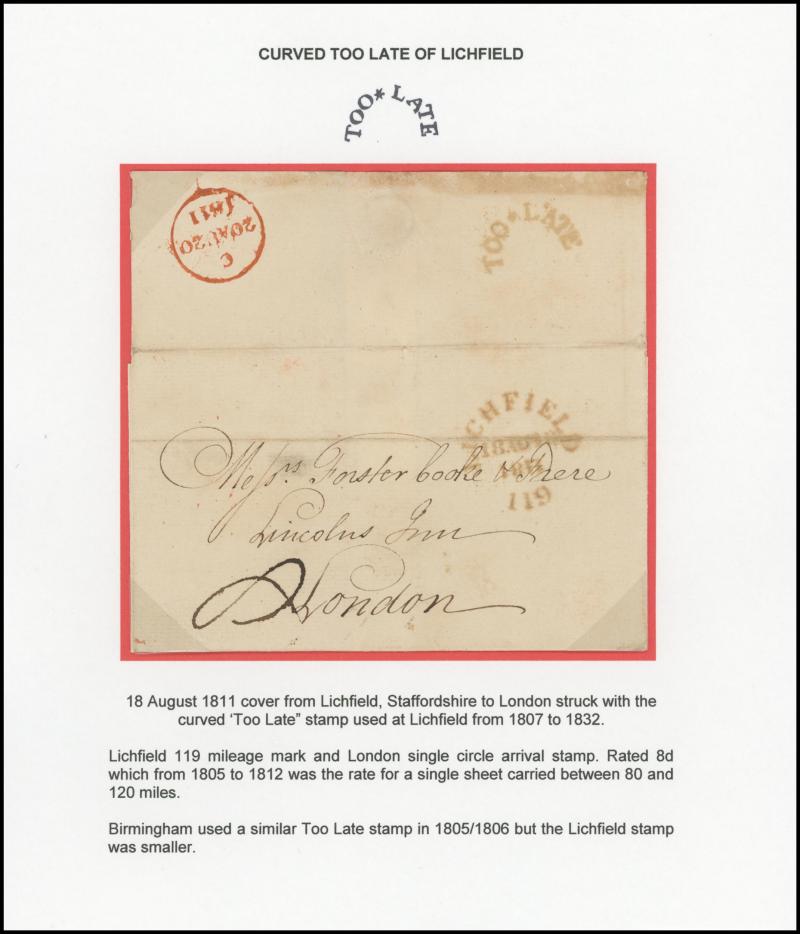 CURVED TOO LATE OF LICHFIELD
TOO * LATE
1811
20 AU 20
C
TOO * LATE
LICHFIELD
119
Messrs Forster Cooke & Frere
Lincolns Inn
London
8
18 August 1811 cover from Lichfield, Staffordshire to London struck with the
curved ‘Too Late” stamp used at Lichfield from 1807 to 1832.
Lichfield 119 mileage mark and London single circle arrival stamp. Rated 8d
which from 1805 to 1812 was the rate for a single sheet carried between 80 and
120 miles.
Birmingham used a similar Too Late stamp in 1805/1806 but the Lichfield stamp
was smaller.